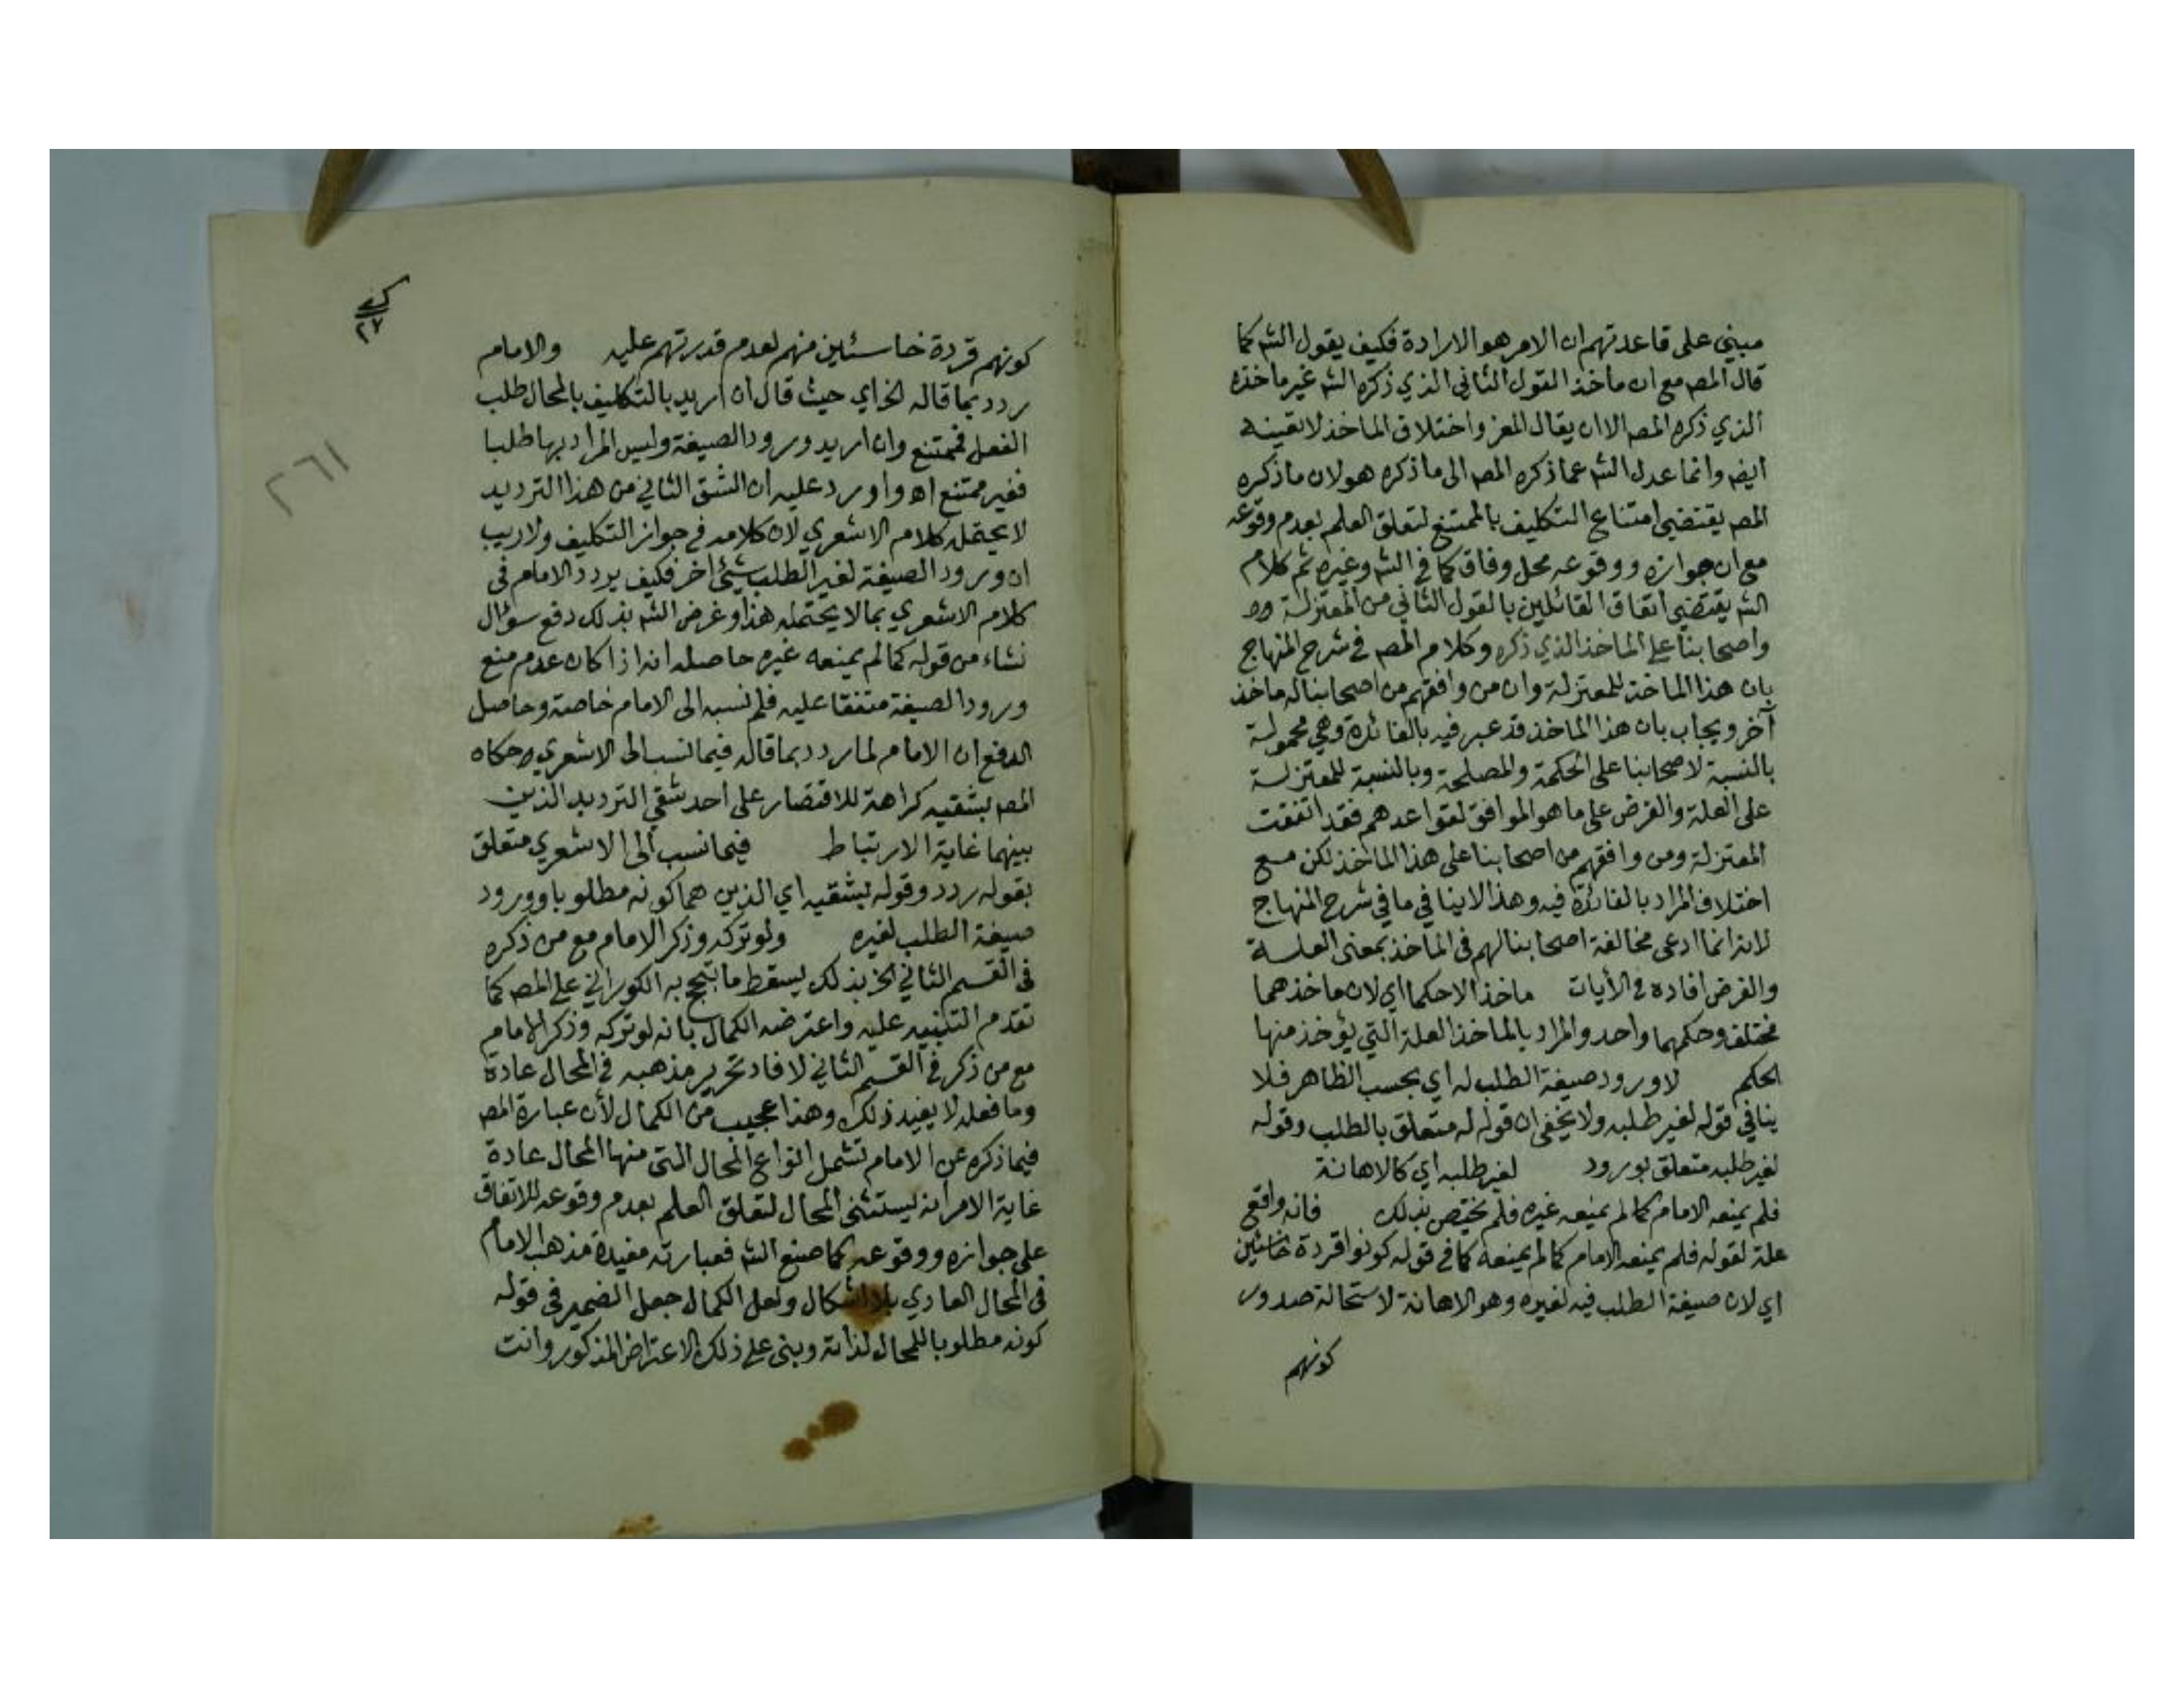 مبني على قاعدتهم ان الامر هو الارادة فكيف يقول الشه كما
قال المصه مع ان ماخذ القول الثاني الذي ذكره الشه غير ماخذه
الذي ذكره المصه الا ان يقال واختلاف الماخذ لا تعينه
ايضه وانما عدل الشه عما ذكره المصه الى ما ذكره هو لان ما ذكره
المصه يقتضي امتناع التكليف بالممتنع لتعلق العلم بعدم وقوعه
مع ان جوازه ووقوعه محل وفاق كما في الشه وغيره ثم كلام
الشه يقتضي اتفاق القائلين بالقول الثاني من المعتزلة
واصحابنا على الماخذ الذي ذكره وكلام المصه في شرح المنهاج
بان هذا الماخذ للمعتزلة وان من وافقهم من اصحابنا له ماخذ
آخر ويجاب بان هذا الماخذ قد عبر فيه بالفائدة وهي محمولة
بالنسبة لاصحابنا على الحكمة والمصلحة وبالنسبة للمعتزلة
على العلة والغرض على ما هو الموافق لقواعدهم فقد اتفقت
المعتزلة ومن وافقهم من اصحابنا على هذا الماخذ لكن مع
اختلاف المراد بالفائدة فيه وهذا لا ينافي ما في شرح المنهاج
لانه انما ادعى مخالفة اصحابنا لهم في الماخذ بمعنى العلة
والغرض افاده في الأيات ماخذ الاحكما اي لان ماخذهما
مختلف وحكمهما واحد والمراد بالماخذ العلة التي يؤخذ منها
الحكم لا ورود صيغة الطلب له اي بحسب الظاهر فلا
ينافي قوله لغير طلبه ولا يخفى ان قوله له متعلق بالطلب وقوله
لغير طلبه متعلق بورود لغير طلبه اي كالاهانة
فلم يمنعه الامام كما لم يمنعه غيره فلم يختص بذلك فانه واقع
علة لقوله فلم يمنعه الامام كما لم يمنعه كما في قوله كونوا قردة خاسئين
اي لان صيغة الطلب فيه لغيره وهو الاهانة لاستحالة صدور
كونهم
٢٧
٢٦١
كونهم قردة خاسئين منهم لعدم قدرتهم عليه والامام
ردد بما قاله الخ اي حيث قال ان اريد بالتكليف بالمحال طلب
الفعل فممتنع وان اريد ورود الصيغة وليس المراد بها طلبا
فغير ممتنع اه واورد عليه ان الشق الثاني من هذا الترديد
لا يحتمله كلام الاشعري لان كلامه في جواز التكليف ولاريب
ان ورود الصيغة لغير الطلب شيئ اخر فكيف يردد الامام في
كلام الاشعري بما لا يحتمله هذا وغرض الشه بذلك دفع سؤال
نشاء من قوله كما لم يمنعه غيره حاصله انه اذا كان عدم منع
ورود الصيغة متفقا عليه فلم نسبه الى الامام خاصة وحاصل
الدفع ان الامام لما ردد بما قاله فيما نسب الى الاشعري حكاه
المصه بشقيه كراهة للاقتصار على احد شقي الترديد الذين
بينهما غاية الارتباط فيما نسب الى الاشعري متعلق
بقوله ردد وقوله بشقيه اي الذين هما كونه مطلوبا وورود
صيغة الطلب لغيره ولو تركه وذكر الامام مع من ذكره
في القسم الثاني الخ بذلك يسقط ما تبجح به الكوراني على المصه كما
تقدم التنبيه عليه واعترضه الكمال بانه لو تركه وذكر الامام
مع من ذكر في القسم الثاني لافاد تحرير مذهبه في المحال عادة
وما فعله لا يفيد ذلك وهذا عجيب من الكمال لأن عبارة المصه
فيما ذكره عن الامام تشمل انواع المحال التي منها المحال عادة
غاية الامر انه يستثنى المحال لتعلق العلم بعدم وقوعه للاتفاق
على جوازه ووقوعه كما صنع الشه فعبارته مفيدة مذهب الامام
في المحال العادي بلا اشكال ولعل الكمال جعل الضمير في قوله
كونه مطلوبا للمحال لذاته وبنى على ذلك الاعتراض المذكور وانت